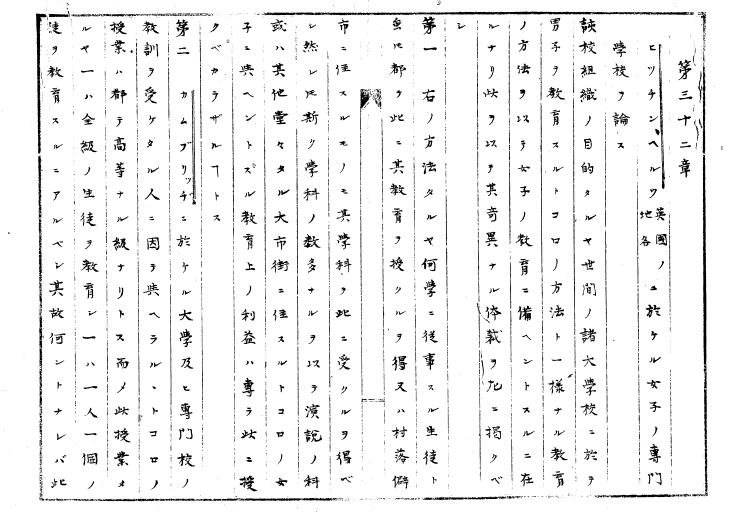 第三十二章
ヒッチンヘルツ英國ノ地名ニ於ケル女子ノ專門
學校ヲ論ス
該校組織ノ目的タルヤ世間ノ諸大學校ニ於テ
男子ヲ教育スルトコロノ方法ト一様ナル教育
ノ方法ヲ以テ女子ノ教育ニ備ヘントスルニ在
ルナリ此ヲ以テ其奇異ナル体裁ヲ左ニ掲クベ
シ
第一 右ノ方法タルヤ何學ニ従事スル生徒ト
雖𪜈都テ此ニ其教育ヲ授クルヲ得又ハ村落僻
市ニ住スルモノモ其學科ヲ此ニ受クルヲ得ベ
シ然レ𪜈斯ク學科ノ数多ナルヲ以テ演説ノ科
或ハ其他堂々タル大市街ニ住スルトコロノ女
子ニ與ヘントスル教育上ノ利益ハ專ラ此ニ授
クベカラザルヿトス
第二 カムブリッヂニ於ケル大學及ヒ專門校ノ
教訓ヲ受ケタル人ニ因テ與ヘラルヽトコロノ
授業ハ都テ高等ナル級ナリトス而メ此授業タ
ルヤ一ハ全級ノ生徒ヲ教育シ一ハ一人一個ノ
徒ヲ教育スルニアルベシ其故何ントナレバ此